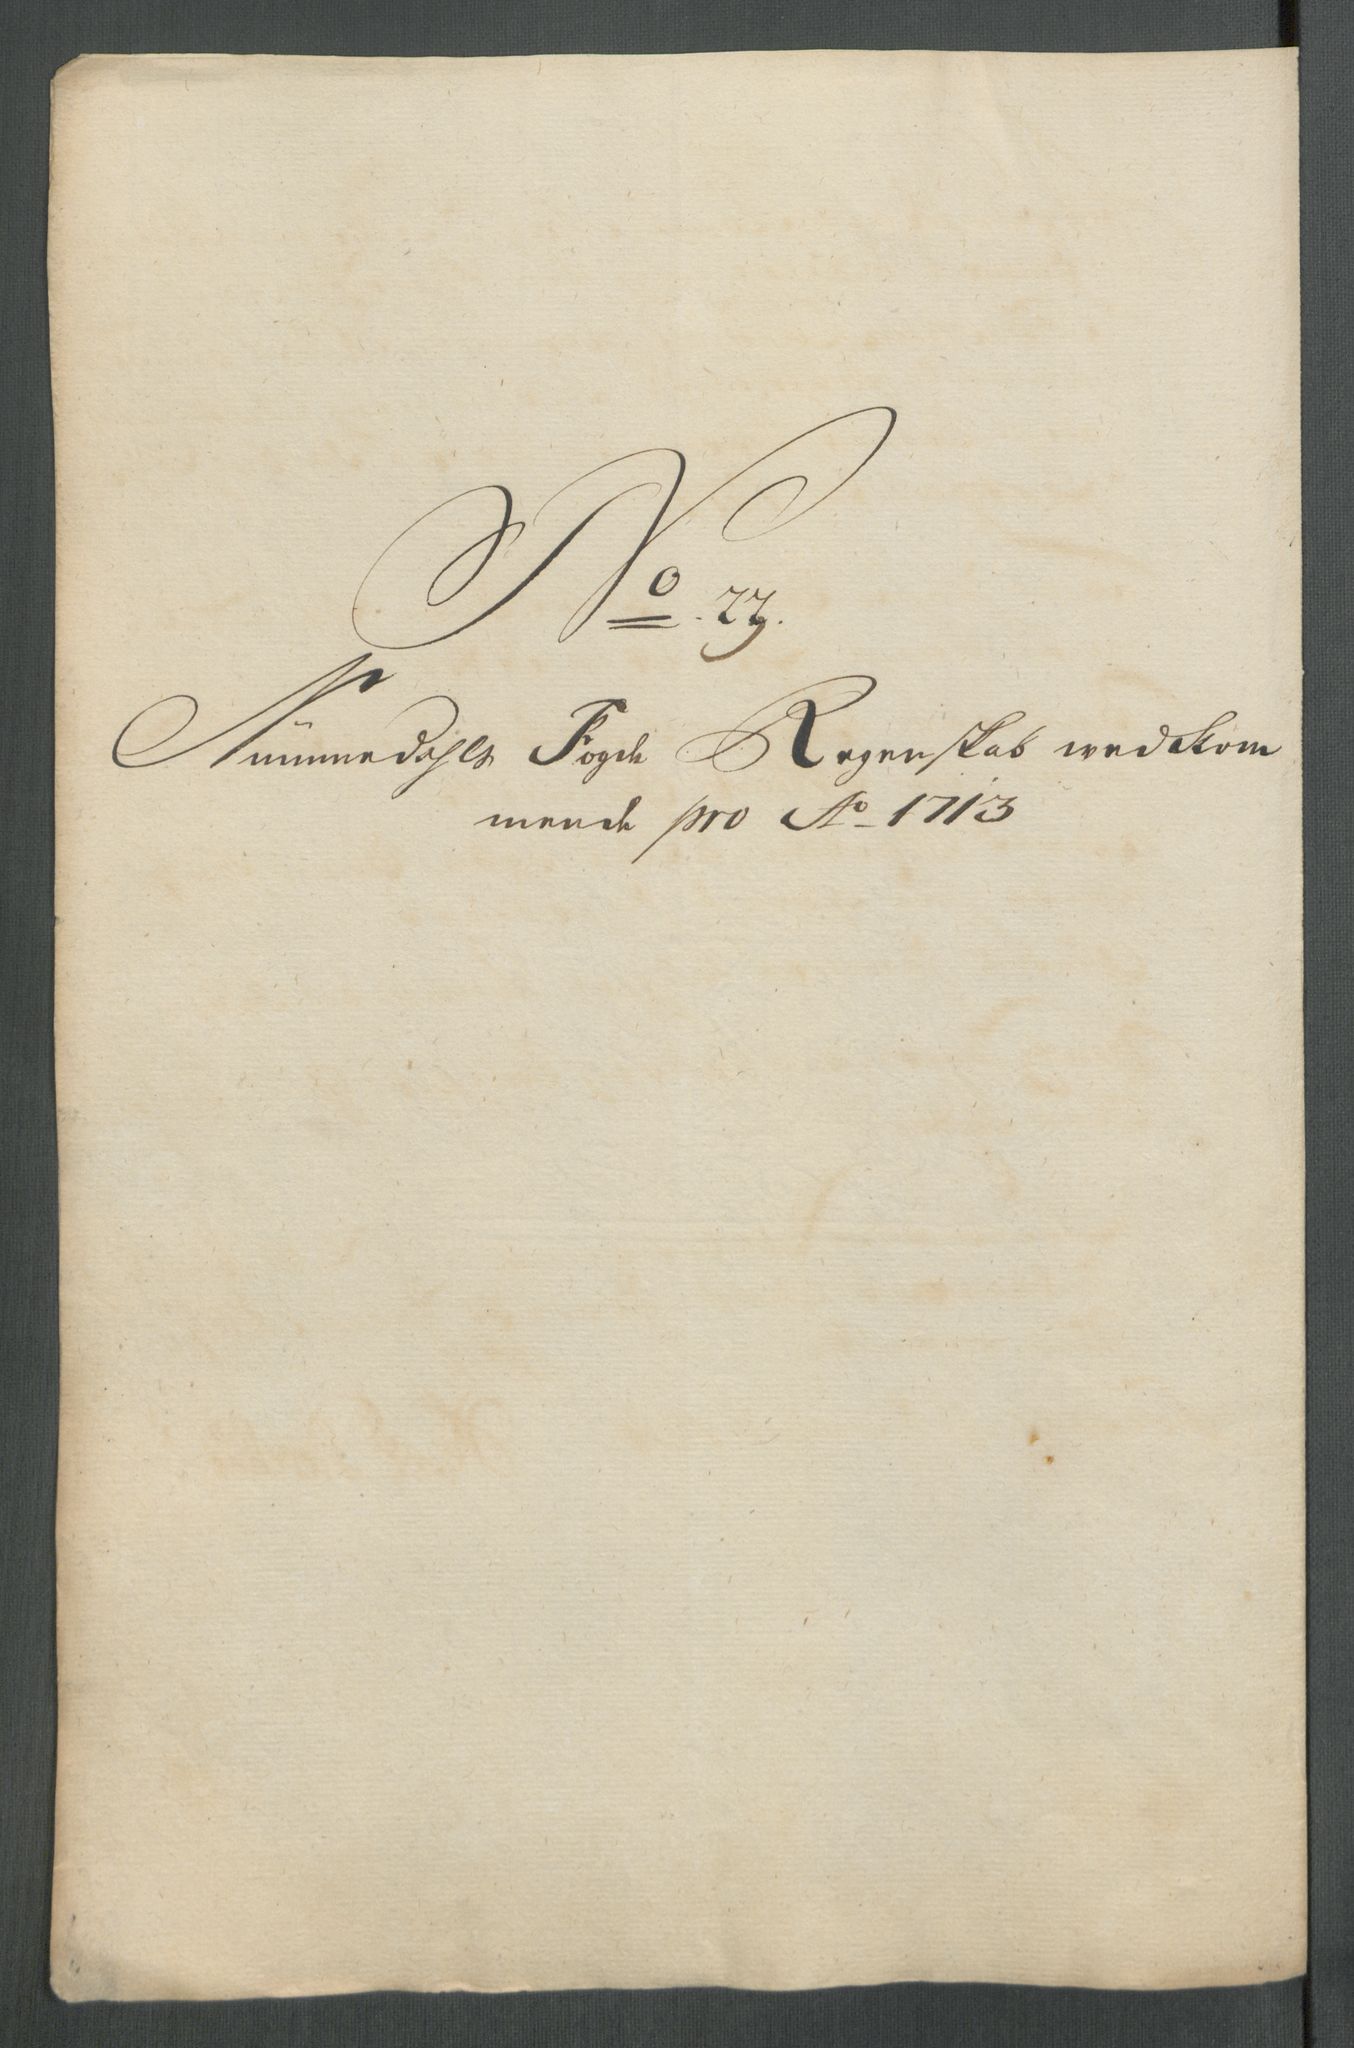 No. 27.
Nummedahls Fogde Regenskab wedkom
mende pro Ao 1713